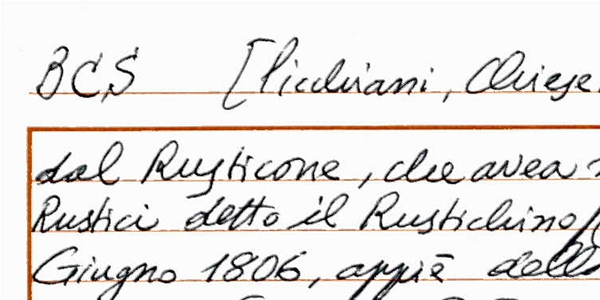 BCS [Picchiani, Chiese
dal Rusticone, che avea
Rustici detto il Rustichino
Giugno 1806, appiè dell